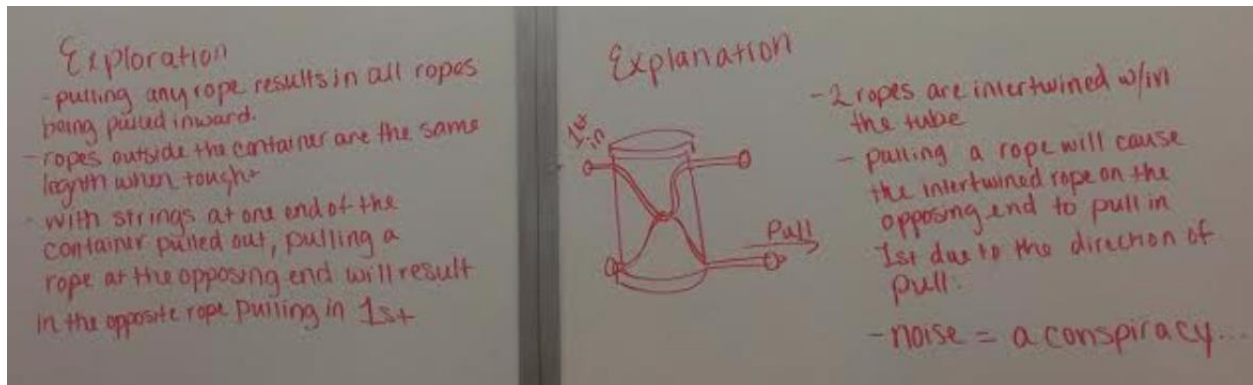 Exploration
- pulling any rope results in all ropes
being pulled inward.
- ropes outside the container are the same
legnth when tought
- with strings at one end of the
container pulled out, pulling a
rope at the opposing end will result
in the opposite rope pulling in 1st
Explanation
1st
in
Pull
- 2 ropes are intertwined w/in
the tube
- pulling a rope will cause
the intertwined rope on the
opposing end to pull in
1st due to the direction of
pull.
- noise = a conspiracy...